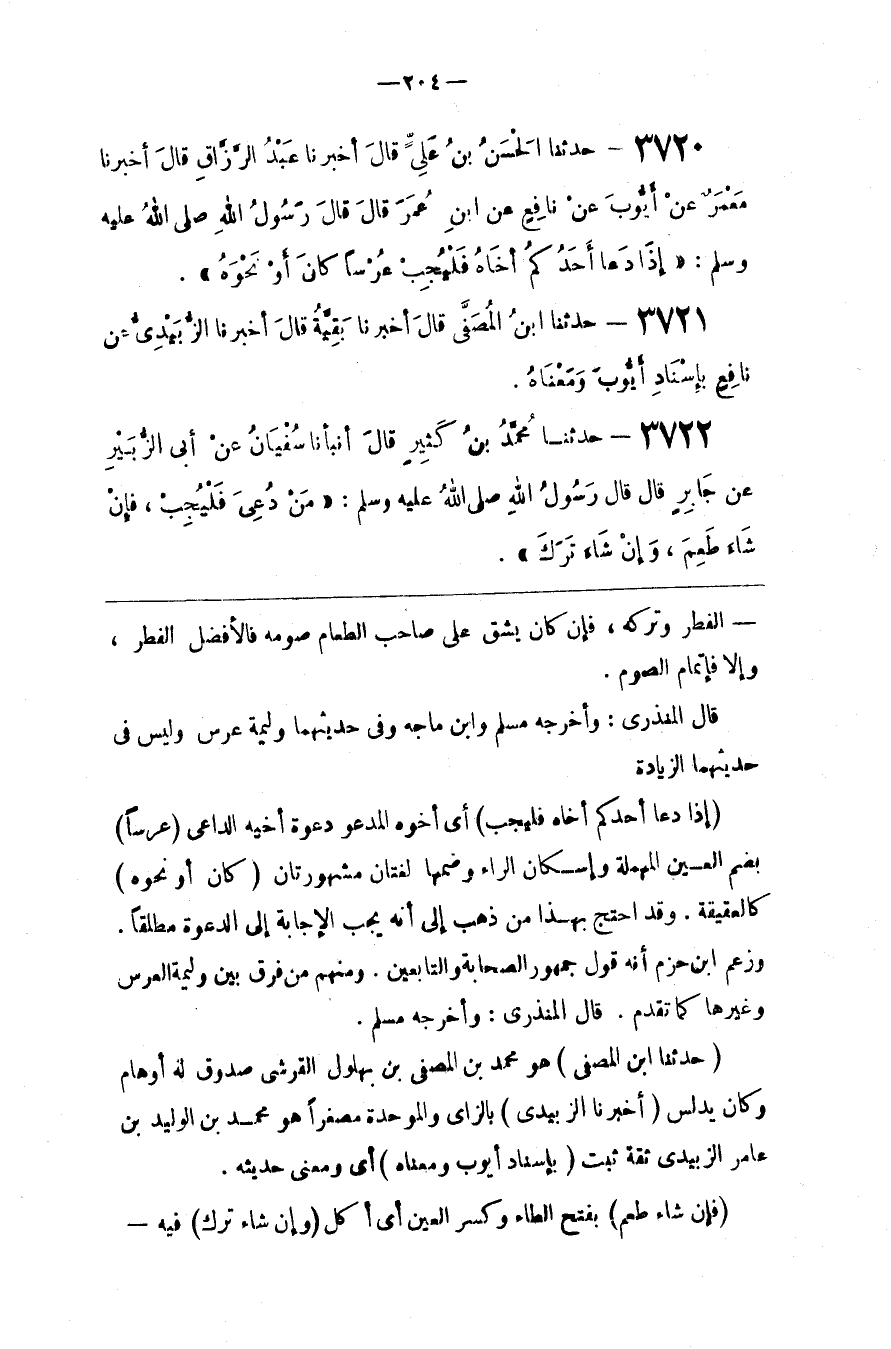 —٢٠٤—
٣٧٢٠ – حدثنا الْحَسَنُ بنُ عَلِيٍّ قالَ أخبرنا عَبْدُ الرَّزَّاقِ قالَ أخبرنا
مَعْمَرٌ عنْ أَيُّوبَ عَنْ نَافِعٍ عن ابنِ عُمَرَ قالَ قالَ رَسُولُ اللهِ صلى اللهُ عليه
وسلم : « إِذَا دَعا أَحَدُكُم أَخَاهُ فَلْيُجِبْ عُرْساً كانَ أَوْ نَحْوَهُ » .
٣٧٢١ – حدثنا ابنُ المُصَفَّى قالَ أخبرنا بَقِيَّةُ قالَ أخبرنا الزُّبَيْدِىُّ عن
نافِعٍ بإِسْنَادِ أَيُّوبَ وَمَعْنَاهُ .
٣٧٢٢ – حدثنا مُحمَّدُ بنُ كَثِيرٍ قالَ أنبأنا سُفْيَانُ عنْ أبى الزُّبَيْرِ
عن جَابِرٍ قال قال رَسُولُ اللهِ صلى اللهُ عليه وسلم : « مَنْ دُعِىَ فَلْيُجِبْ ، فإِنْ
شَاء طَعِمَ ، وَإِنْ شَاء تَرَكَ » .
— الفطر وتركه ، فإن كان يشق على صاحب الطعام صومه فالأفضل الفطر ،
وإلا فإتمام الصوم .
قال المنذرى : وأخرجه مسلم وابن ماجه وفى حديثهما وليمة عرس وليس فى
حديثهما الزيادة
(إذا دعا أحدكم أخاه فليجب) أى أخوه المدعو دعوة أخيه الداعى (عرساً)
بضم العين المهملة وإسكان الراء وضمها لغتان مشهورتان ( كان أو نحوه )
كالعقيقة . وقد احتج بهذا من ذهب إلى أنه يجب الإجابة إلى الدعوة مطلقاً .
وزعم ابن حزم أنه قول جمهور الصحابة والتابعين . ومنهم من فرق بين وليمة العرس
وغيرها كما تقدم . قال المنذرى : وأخرجه مسلم .
( حدثنا ابن المصفى ) هو محمد بن المصفى بن بهلول القرشى صدوق له أوهام
وكان يدلس ( أخبرنا الزبيدى ) بالزاى والموحدة مصغراً هو محمد بن الوليد بن
عامر الزبيدى ثقة ثبت ( بإسناد أيوب ومعناه ) أى ومعنى حديثه .
(فإن شاء طعم) بفتح الطاء وكسر العين أى أكل (وإن شاء ترك) فيه —